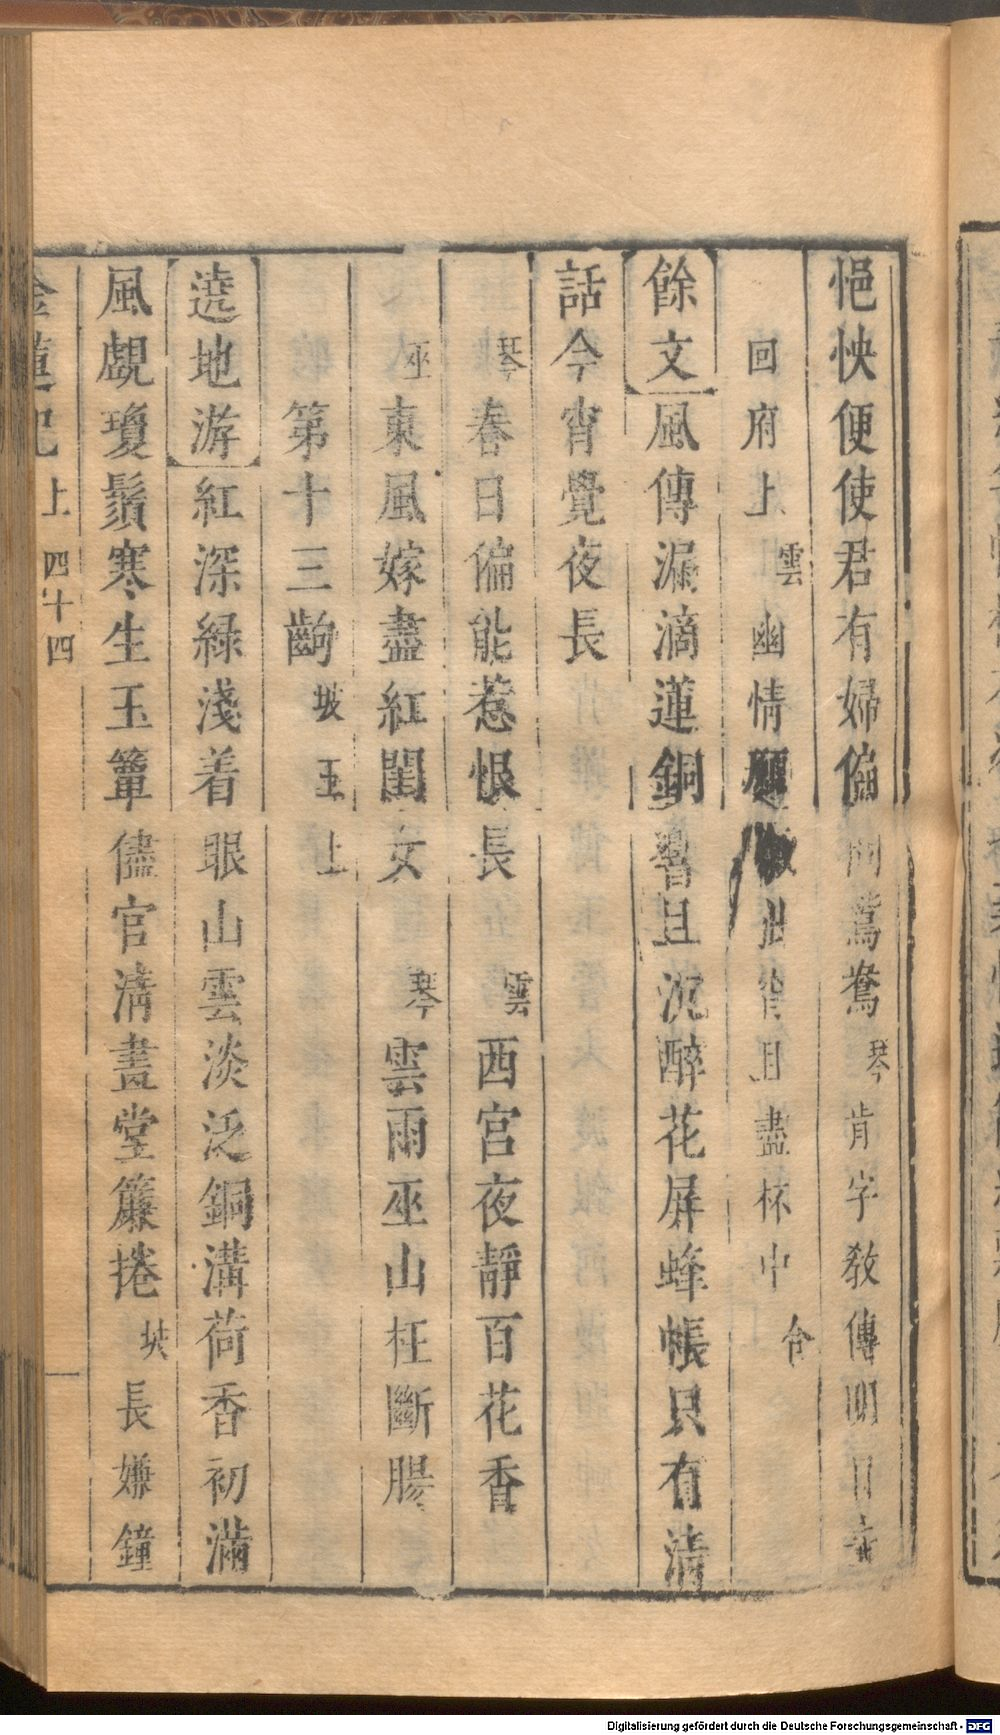 悒怏便使君有婦偏向鴛鴦琴肯字教傳明日
回府上雲幽情願且盡杯中合
餘文風傳漏滴蓮銅響且沉醉花屏蜂帳只有清
話今宵覺夜長
琴春日偏能惹恨長雲西宮夜靜百花香
巫東風嫁盡紅閨女琴雲雨巫山枉斷腸
第十三齣坡玉上
遶地游紅深綠淺着眼山雲淡泛銅溝荷香初滿
風覷瓊鬚寒生玉簟儘官淸晝堂簾捲坡長嫌鐘
金蓮記上四十四
Digitalisierung gefördert durch die Deutsche Forschungsgemeinschaft - DFG